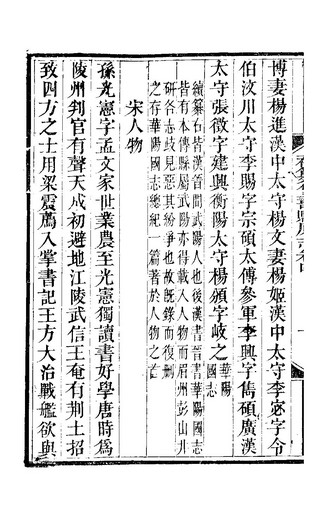 博妻楊進漢中太守楊文妻楊姬漢中太守李宓字令
伯汶川太守李賜字宗碩太傅參軍李興字雋碩廣漢
太守張徵字建興衡陽太守楊頒字岐之華陽
國志
續纂右皆漢晉間武陽人也後漢書晉書華陽國志
皆有本傳縣屬武陽亦得載入人物而眉州彭山井
研各志歧見惡其紛爭也故既錄而復刪
之存華陽國志總紀一篇著於人物之首
宋人物
孫光憲字孟文家世業農至光憲獨讀書好學唐時為
陵州判官有聲天成初避地江陵武信王奄有荆土招
致四方之士用梁震薦入掌書記王方大治戰艦欲與